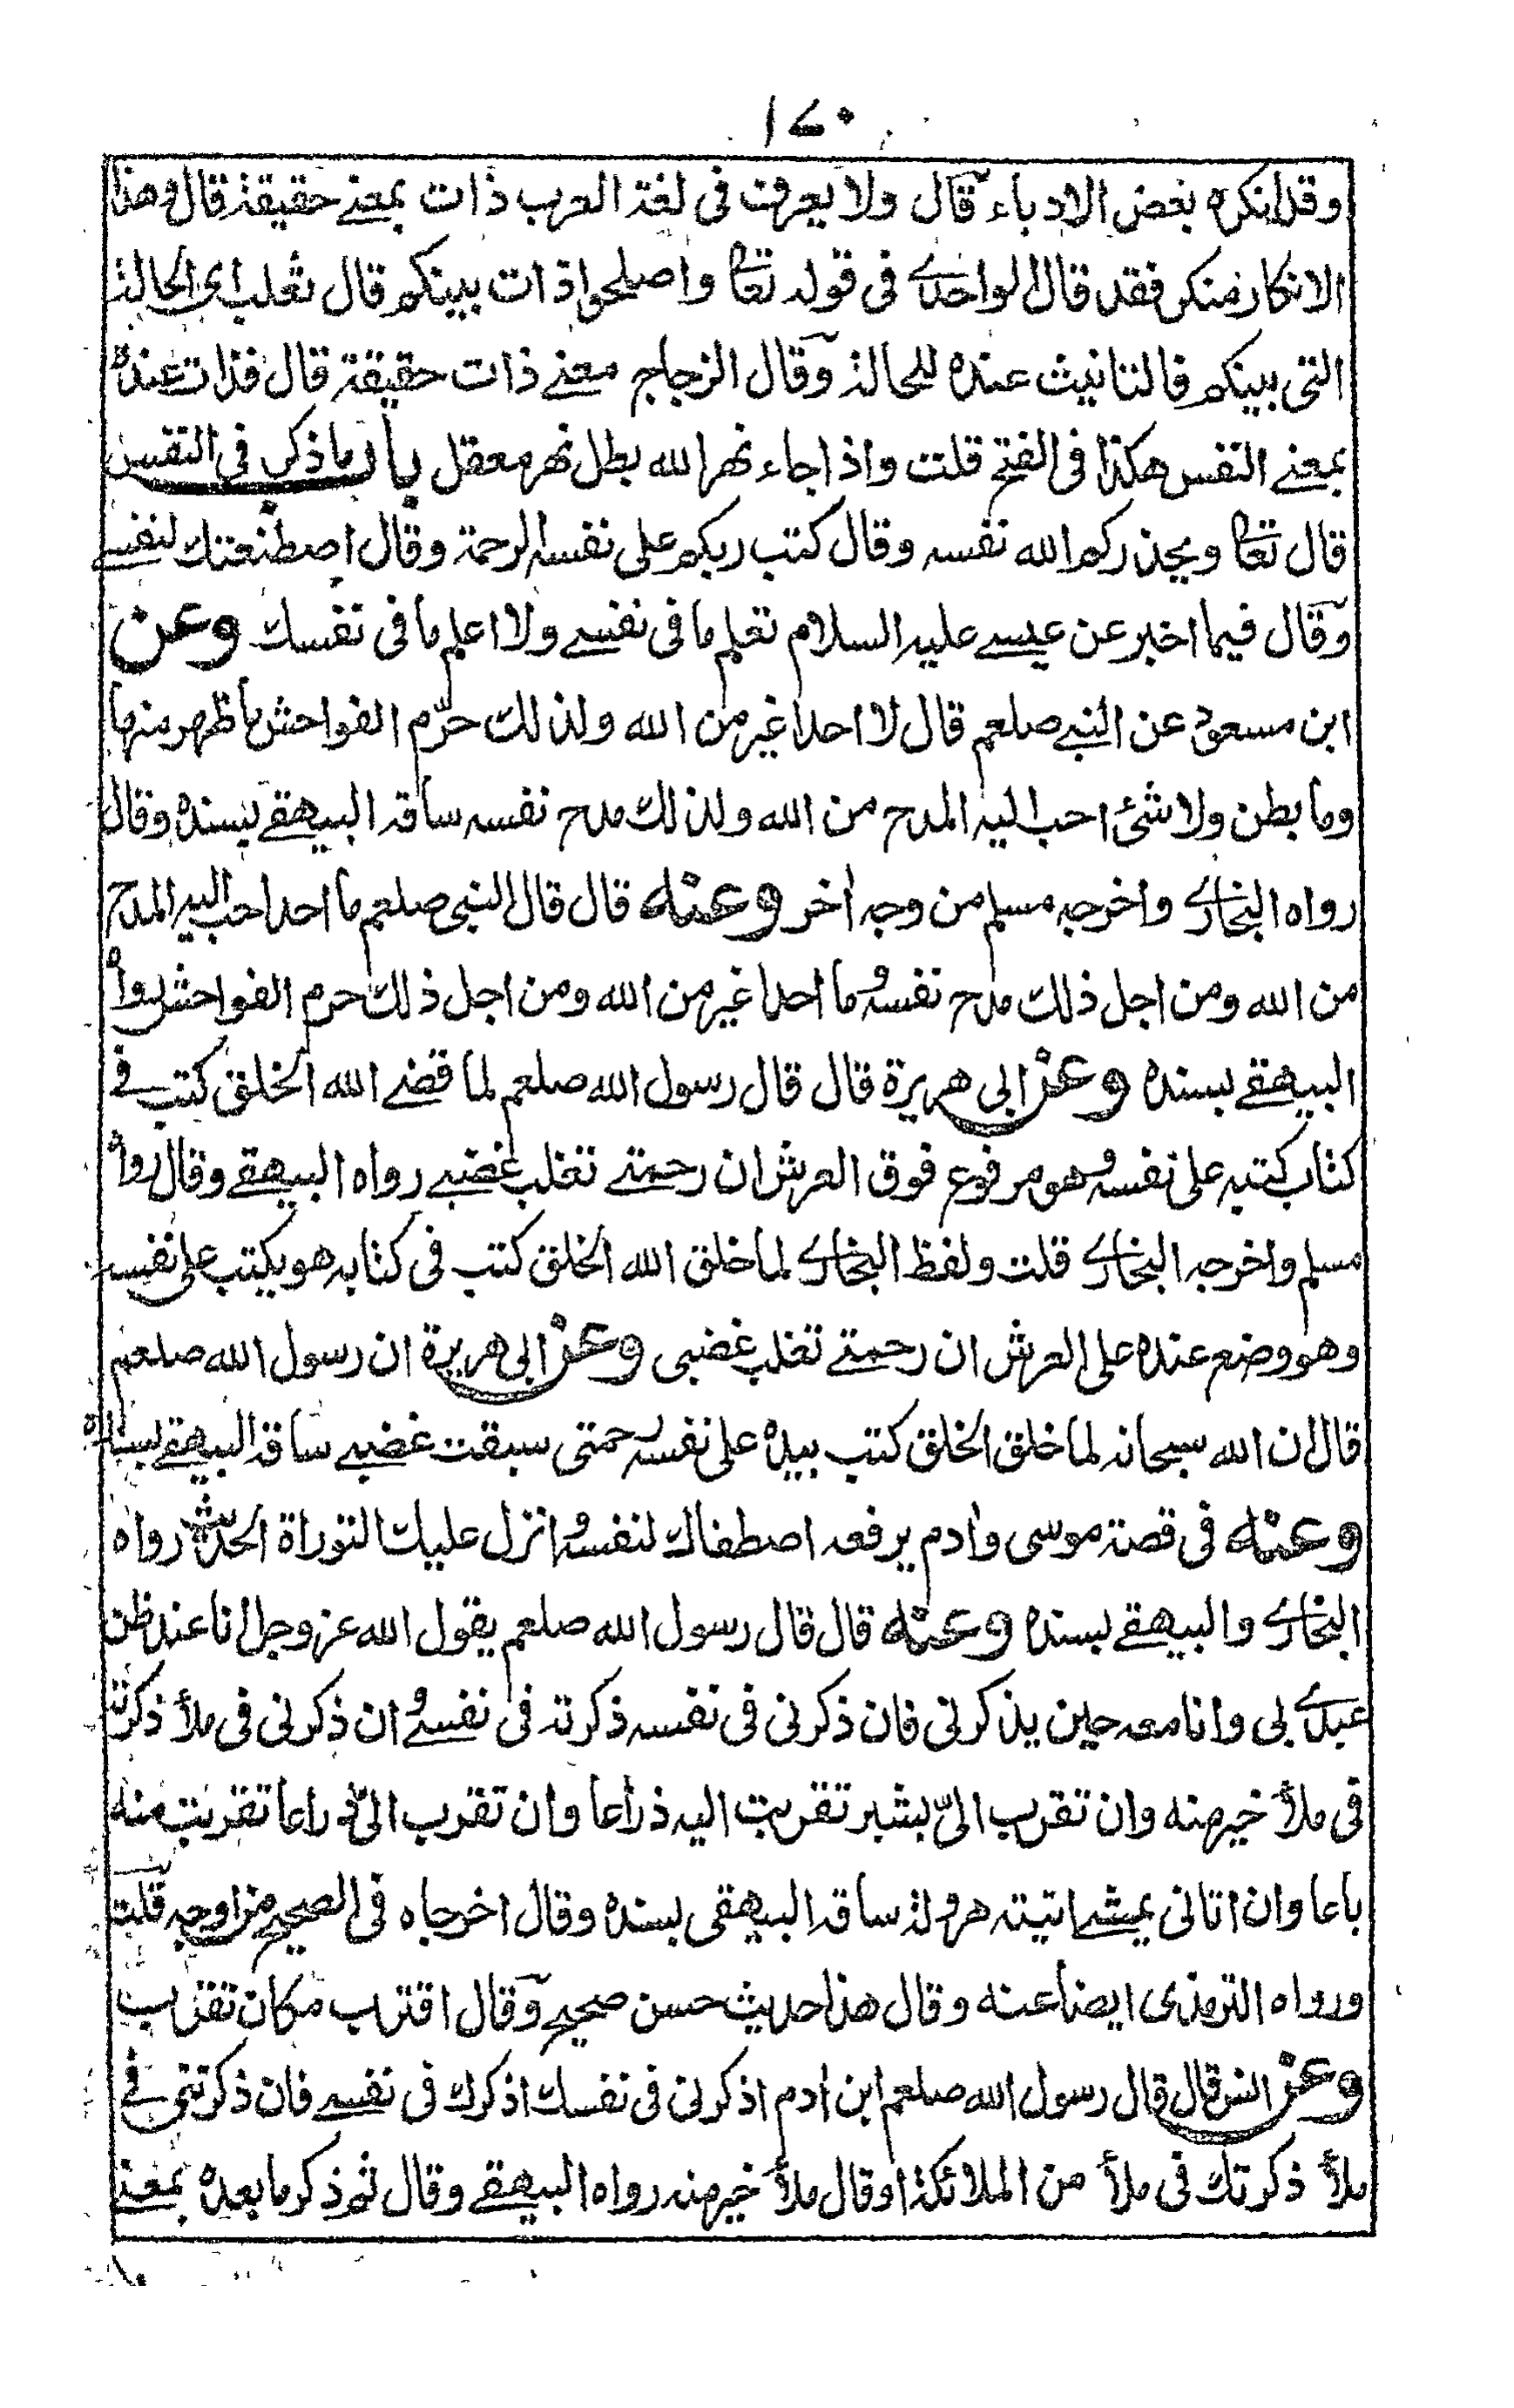 ١٧٠
وقد انكره بعض الادباء قال ولا يعرف فى لغة العرب ذات بمعنے حقيقة قال وهذا
الانكار منكر فقد قال الواحدے فى قوله تعا واصلحوا ذات بينكم قال ثعلب اى الحالة
التى بينكم فالتانيث عنده للحالة وقال الزجاج معنے ذات حقيقة قال فذات عنده
بمعنے النفس هكذا فى الفتح قلت واذا جاء نهر الله بطل نهر معقل باب ما ذكر فى النفس
قال تعا ويحذركم الله نفسه وقال كتب ربكم على نفسه الرحمة وقال اصطنعتك لنفسے
وقال فيما اخبر عن عيسے عليه السلام تعلم ما فى نفسے ولا اعلم ما فى نفسك وعن
ابن مسعود عن النبے صلعم قال لا احدا غير من الله ولذلك حرّم الفواحش ما ظهر منها
وما بطن ولا شئ احب اليه المدح من الله ولذلك مدح نفسه ساقه البيهقے بسنده وقال
رواه البخارے واخرجه مسلم من وجه اٰخر وعنه قال قال النبى صلعم ما احد احب اليه المدح
من الله ومن اجل ذلك مدح نفسه وما احدا غير من الله ومن اجل ذلك حرم الفواحش رواه
البيهقے بسنده وعن ابى هريرة قال قال رسول الله صلعم لما قضے الله الخلق كتب فے
كتاب كتبه على نفسه وهو مرفوع فوق العرش ان رحمتے تغلب غضبے رواه البيهقے وقال رواه
مسلم واخرجه البخارے قلت ولفظ البخارے لما خلق الله الخلق كتب فى كتابه هو يكتب على نفسه
وهو وضع عنده على العرش ان رحمتے تغلب غضبى وعن ابى هريرة ان رسول الله صلعم
قال ان الله سبحانه لما خلق الخلق كتب بيده على نفسه رحمتى سبقت غضبے ساقه البيهقے بسنده
وعنه فى قصة موسى واٰدم يرفعه اصطفاك لنفسه وانزل عليك التوراة الحديث رواه
البخارے والبيهقے بسنده وعنه قال قال رسول الله صلعم يقول الله عز وجل انا عند ظن
عبدے بى وانا معه حين يذكرنى فان ذكرنى فى نفسه ذكرته فى نفسے وان ذكرنى فى ملأ ذكرته
فى ملأ خير منه وان تقرب الىّ بشبر تقربت اليه ذراعا وان تقرب الىّ ذراعا تقربت منه
باعا وان اتانى يمشے اتيته هرولة ساقه البيهقى بسنده وقال اخرجاه فى الصحيح من اوجه قلت
ورواه الترمذى ايضا عنه وقال هذا حديث حسن صحيح وقال اقترب مكان تقرب
وعن انس قال قال رسول الله صلعم ابن اٰدم اذكرنى فى نفسك اذكرك فى نفسے فان ذكرتنى فے
ملأ ذكرتك فى ملأ من الملائكة اوقال ملأ خير منه رواه البيهقے وقال ثم ذكر ما بعده بمعنے